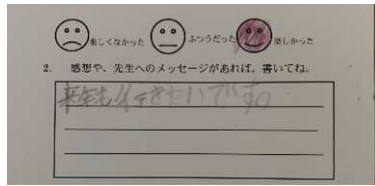 楽しくなかった ふつうだった 楽しかった
2. 感想や、先生へのメッセージがあれば、書いてね。
来年も行きたいです。